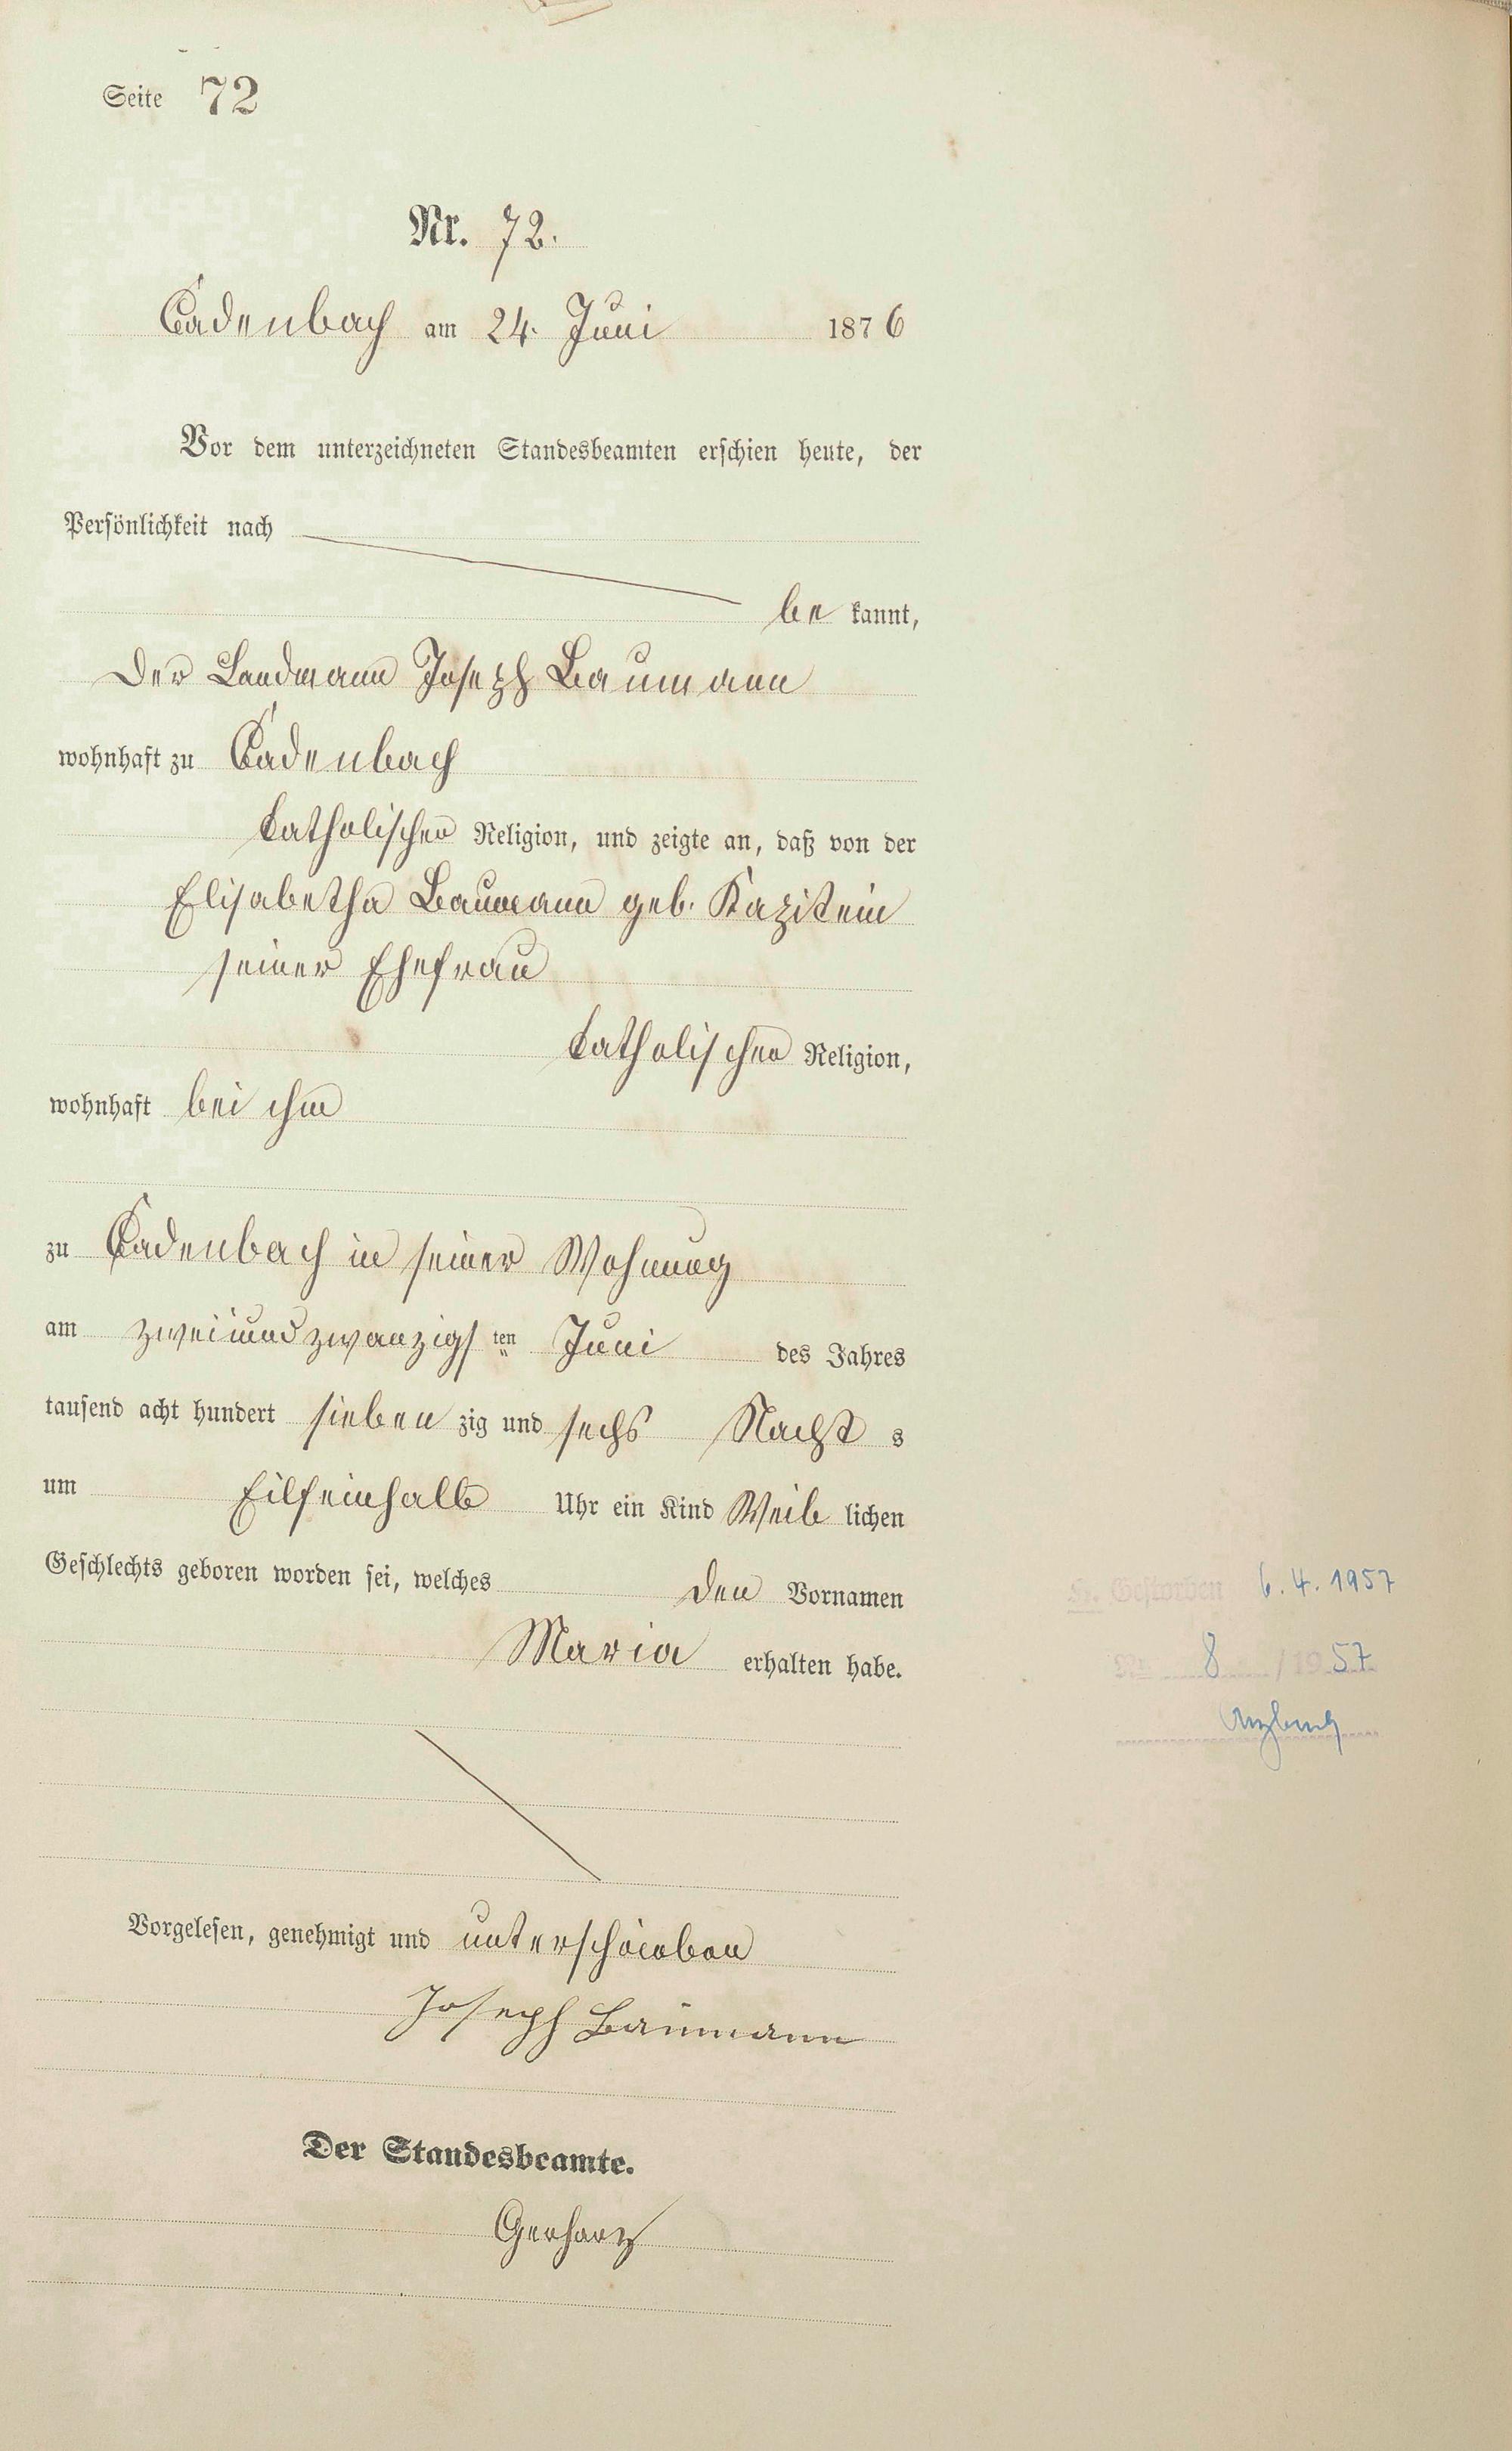 Seite 72
Nr. 72.
Cadenbach am 24. Juni 1876
Vor dem unterzeichneten Standesbeamten erschien heute, der
Persönlichkeit nach
bekannt,
der Landmann Joseph Baumann
wohnhaft zu Cadenbach
katholischer Religion, und zeigte an, daß von der
Elisabetha Baumann geb. Kapitein
seiner Ehefrau
katholischer Religion,
wohnhaft bei ihm
zu Cadenbach in seiner Wohnung
am zweiundzwanzigsten Juni des Jahres
tausend acht hundert siebenzig und sechs Nachts
um Eilfeinhalb Uhr ein Kind Weiblichen
Geschlechts geboren worden sei, welches den Vornamen
Maria erhalten habe.
Gestorben 6.4.1957
Nr. 8 / 1957
Vorgelesen, genehmigt und unterschrieben
Joseph Baumann
Der Standesbeamte.
Gerharz